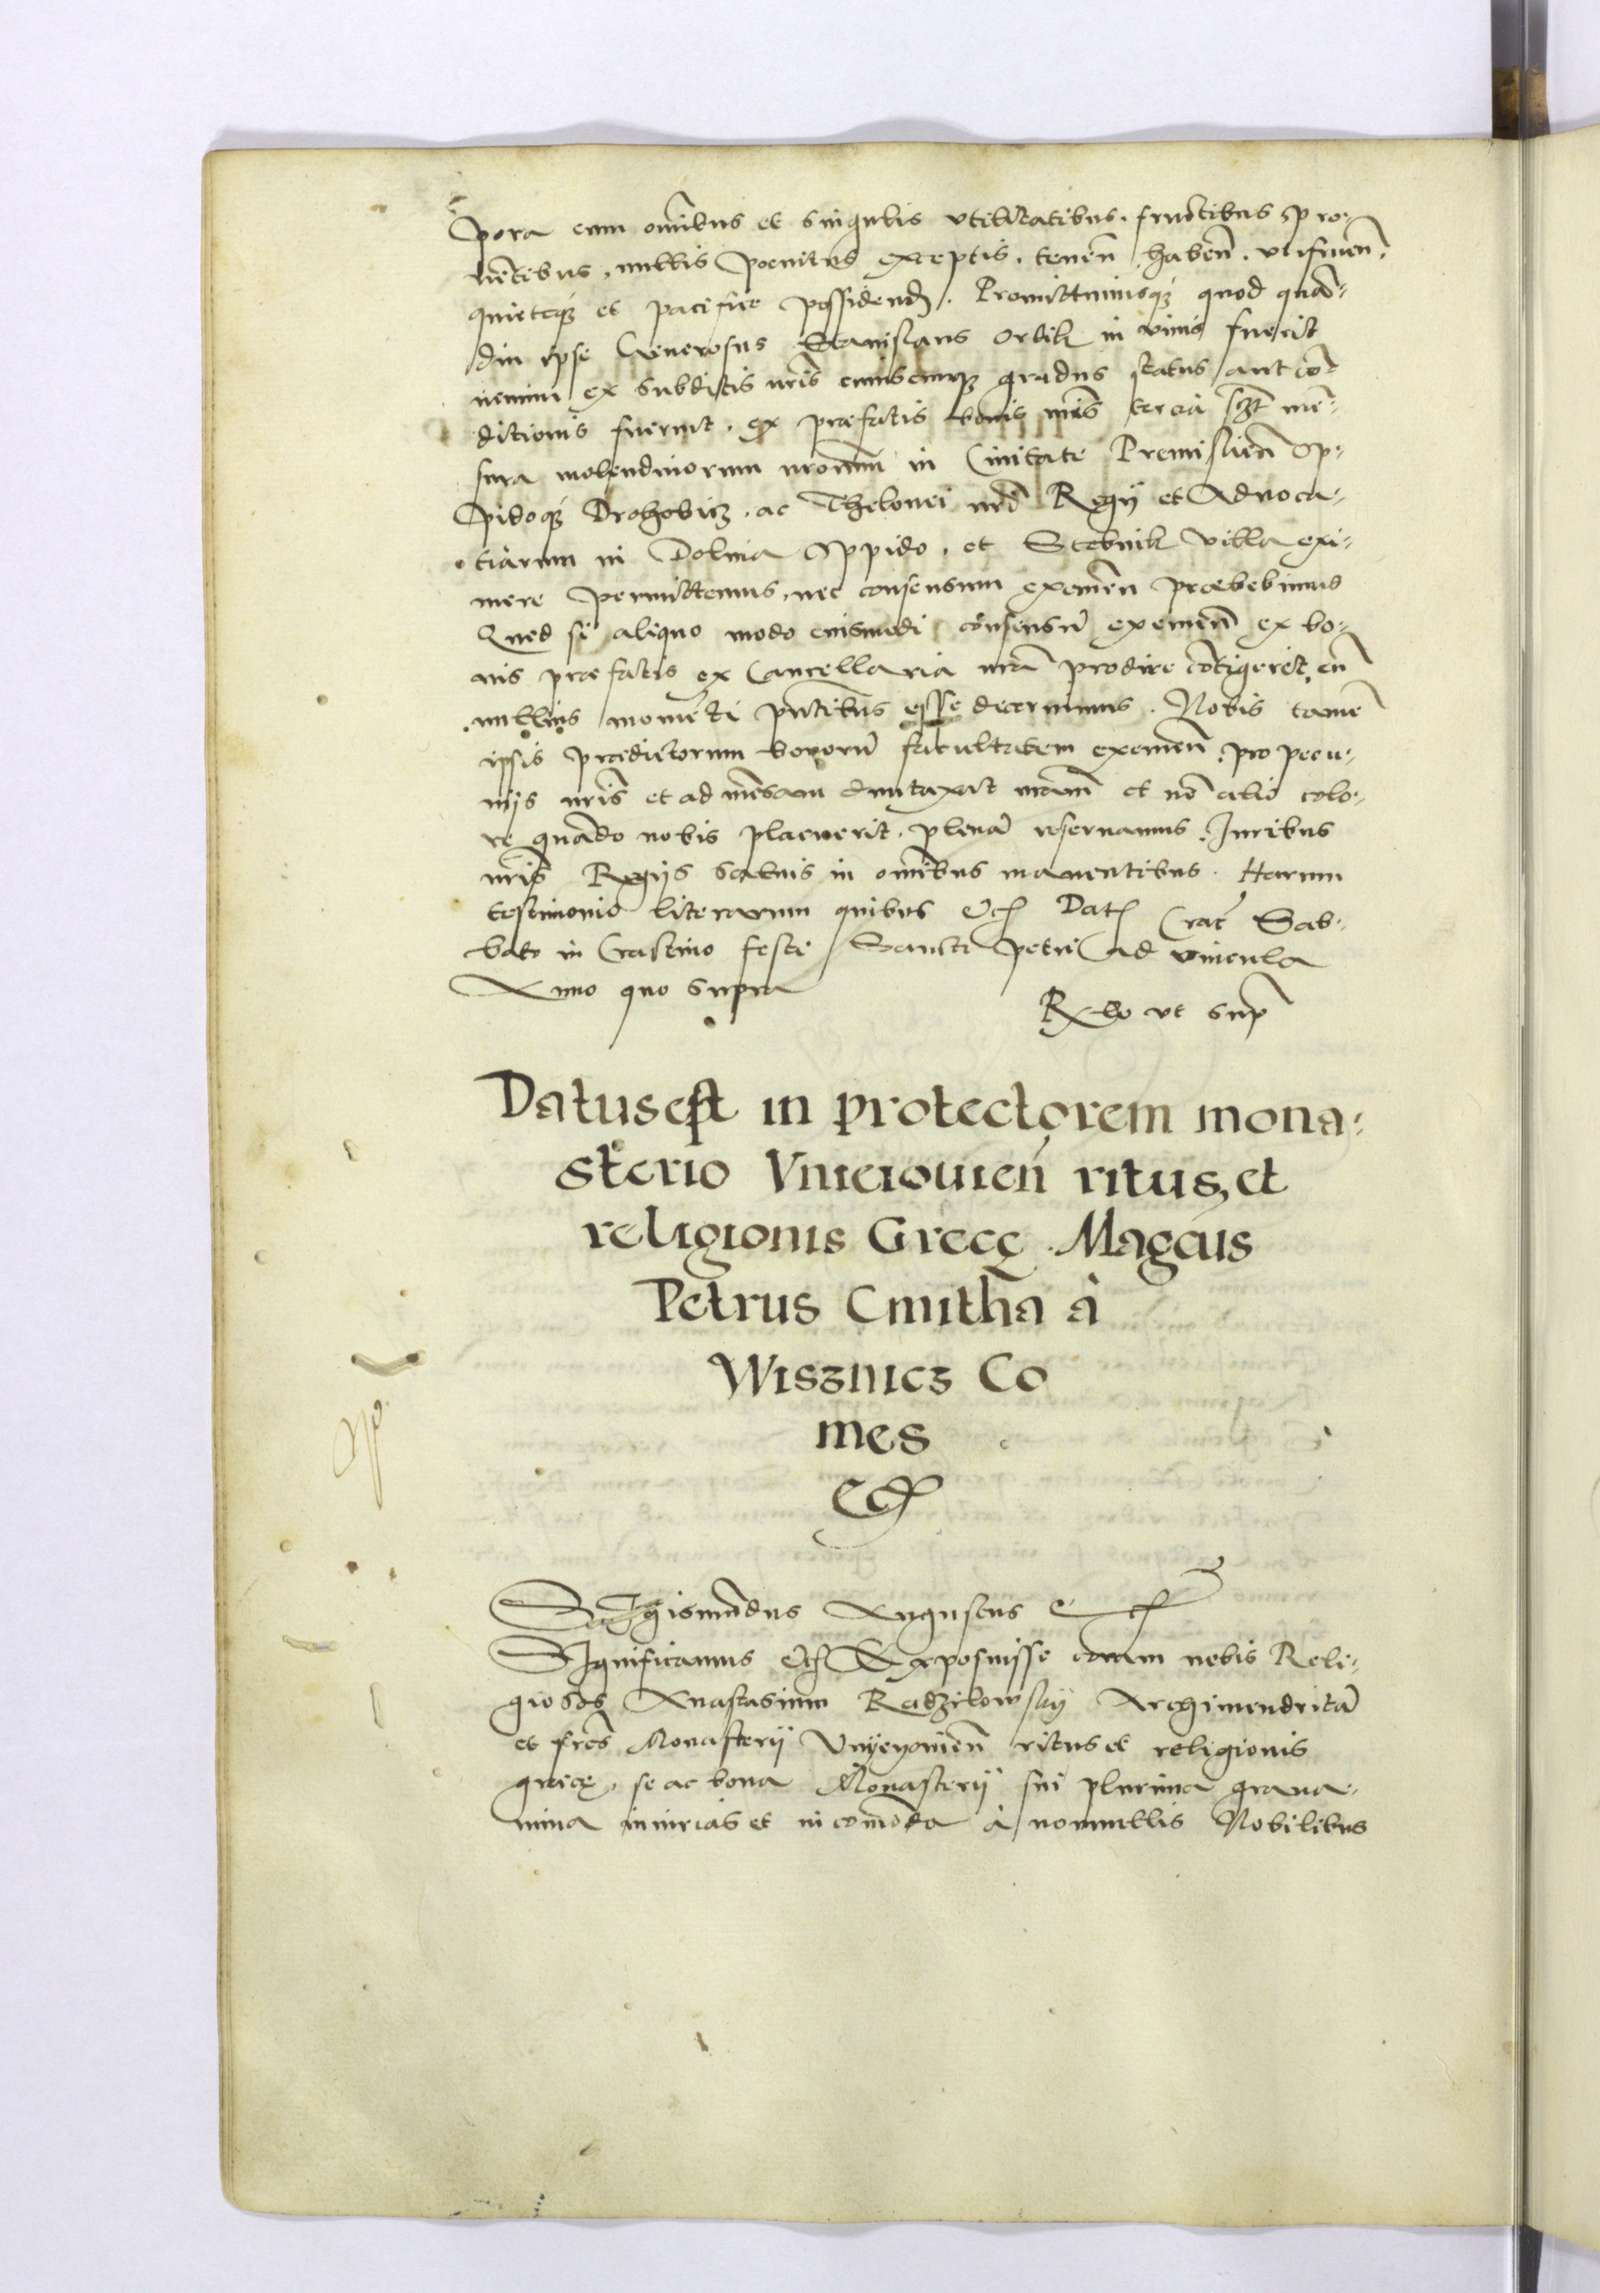 pora cum om̃ibus et singulis vtilitatibus. fructibus pro-
uẽtibus, nullis poenitus exceptis, tenen̄ haben̄. vtifruen̄.
quieteq; et pacifice possidend̄. Promittimusq; quod quã-
diu ipse Generosus Stanislaus Orlik in viuis fuerit
nemini ex subditis nr̃is cuiuscunq; gradus status aut cõ-
ditionis fuerint. ex præfatis bonis nr̃is tercia sczt men-
sura molendinorum nr̃orum in Ciuitate Premislien̄ Op-
pidoq; Drohobicz. ac Thelonei nr̃i Regij et Aduoca-
tiarum in Dolina Oppido, et Stebnik villa exi-
mere permittemus, nec consensum eximen̄ præbebimus
Quod si aliquo modo cuismodi consensũ eximen̄ ex bo-
nis præfatis ex Cancellaria nr̃a prodire cõtigerit, eũ
nullius momẽti pñtibus esse decernimus. Nobis tamẽ
ipsis prædictorum bonorũ facultatem eximen̄. pro pecu-
nijs nr̃is et ad mẽsam duntaxat nr̃am et nõ alio colo-
re quãdo nobis placuerit. plenã reseruamus. Iuribus
nr̃is Regijs saluis in om̃ibus manentibus. Harum
testimonio literarum quibus etc̃ Dat̃ Crac̃ Sab-
bato in Crastino festi Sancti Petri ad vincula
Anno quo supra
R̃lo vt sup̃
Datus est in protectorem mona-
sterio Vnieiouien̄ ritus, et
religionis Grecę. Magc̃us
Petrus Cmitha à
Wisznicz Co
mes
Etc̃
Sigismũdus Augustus etc̃
Significamus etc̃ Exposuisse coram nobis Reli-
giosos Anastasium Radzilowsky Archimendritã
et fr̃es Monasterij Vnyeyouien̄ ritus et religionis
græcę, se ac bona Monasterij sui plurima graua-
mina iniurias et incõmoda à nonnullis Nobilibus